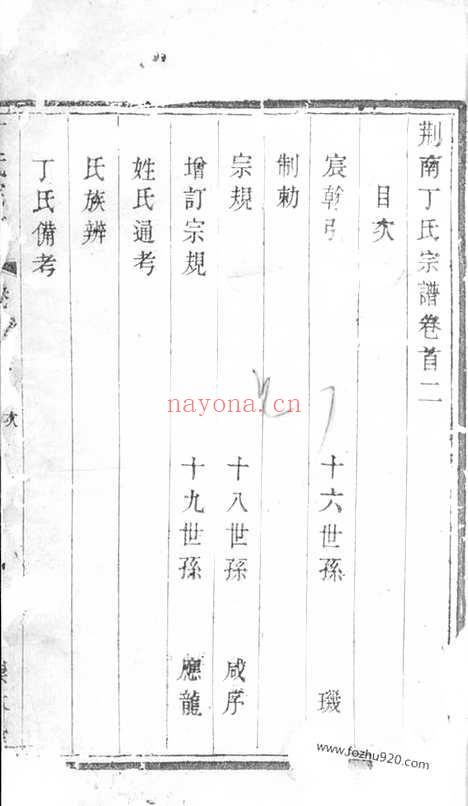 荆南丁氏宗譜卷首二
目次
宸翰引 十六世孫 璣
制勅
宗規 十八世孫 咸序
增訂宗規 十九世孫 應龍
姓氏通考
氏族辨
丁氏備考
次
nayona.cn
www.fozhu920.com